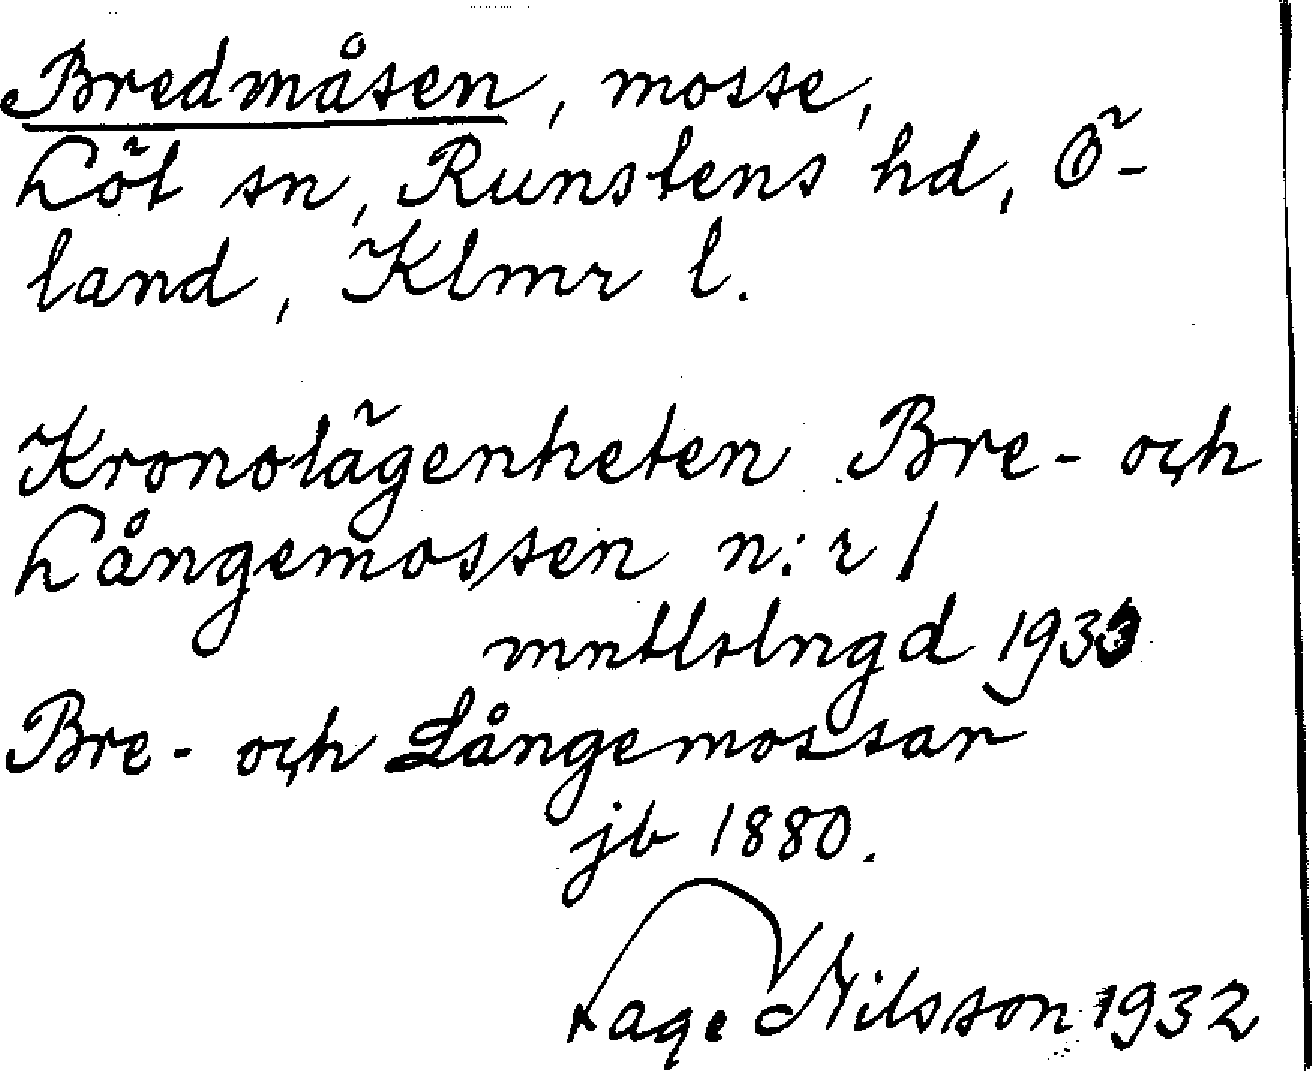 Bredmåsen, mosse,
Löt sn, Runstens hd, Ö-
land, Klmr l.
Kronolägenheten Bre- och
Långemossen n:r 1
mntlslngd 1933
Bre- och Långemossar
jb 1880.
Lage Nilsson 1932